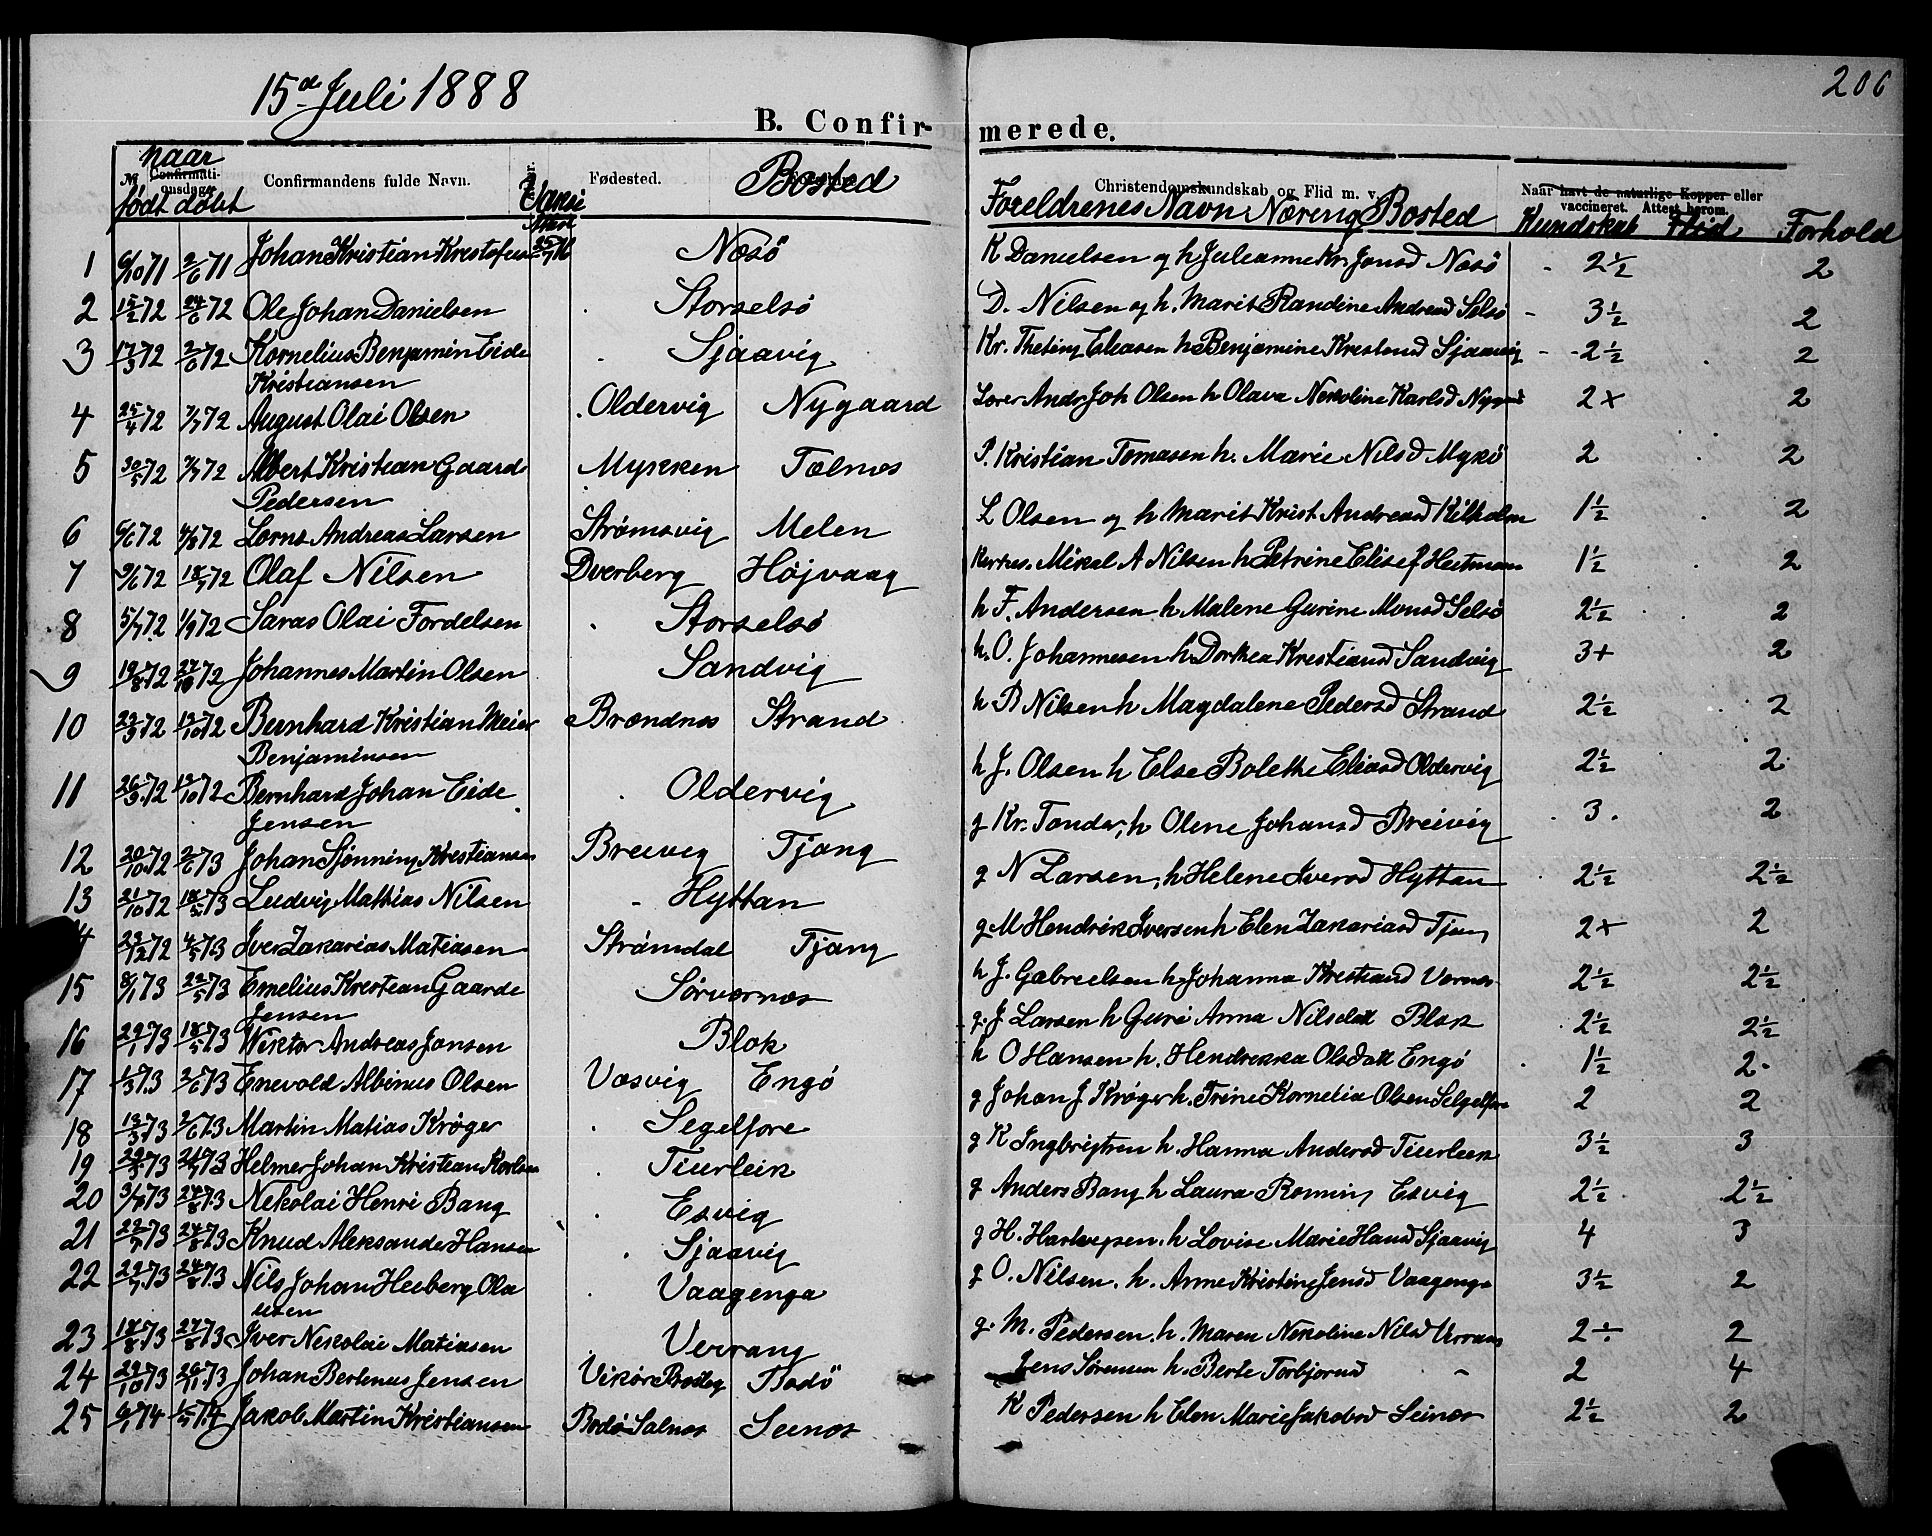 15d Juli 1888
206
B. Confir-
merede.
naar
No Confirmationsdage.
født døbt
Confirmandens fulde Navn.
Fødested.
Bosted
Christendomskundskab og Flid m. v.
Foreldrenes Navn Næring Bosted
Naar havt de naturlige Kopper eller
vaccineret. Attest herom.
Kundskab Flid Forhold
1 6/10 71 2/6 71 Johan Kristian Kristofersen Næsö K Danielsen og h Julianne Kr. Jonsd Næsö 2½ 2
2 15/2 72 24/6 72 Ole Johan Danielsen Storselsö D. Nilsen og h. Marit Randine Andread Selsö 3½ 2
3 17/3 72 2/6 72 Kornelius Benjamin Eide
Kristiansen Sjaavig Kr. Theting Eliasen h Benjamine Sjaavig 2½ 2
4 25/4 72 7/7 72 August Olai Olsen Oldervig Nygaard Lærer Andr Joh Olsen h Olava Nekoline Karlsd 2+ 2
5 30/5 72 7/7 72 Albert Kristian Gaard
Pedersen Mykken Tælnes P. Kristian Tomasen h. Marie Nilsd Mykö 2 2
6 6/6 72 72 Andreas Larsen Strømsvig Melen L Olsen og h Marit Krist Andread Kilholm 1½ 2
7 9/6 72 72 Olaf Nilsen Dverberg Højvaag Mikal A Nilsen h Petrine Elisef Heitmann 1½ 2
8 5/7 72 1/9 72 Saras Olai Fordelsen Storselsö h F. Andersen h Malene Gurine Monsd Selsö 2½ 2
9 19/8 72 27/10 72 Johannes Martin Olsen Sandvig h. O. Johannesen h. Dorthea Kristiansd Sandvig 3+ 2
10 72 72 Bernhard Kristian Meier
Benjaminsen Brændnes Strand h B Nilsen h Magdalene Pedersd Strand 2½ 2
11 26/9 72 72 Bernhard Johan Eide
Jensen Oldervig h J. Olsen h Else Bolette Eliasd Oldervig 2½ 2
12 20/10 72 2/6 73 Johan Sjønning Kristiansen Breivig Tjong g Kr. Tonder, h Olene Johansd Breivig 3. 2
13 21/10 72 18/5 73 Ludvig Mathias Nilsen Hyttan g N Larsen, h Helene Iversd Hyttan 2½ 2½
72 4/5 73 Iver Zakarias Matiasen Strömdal Tjong g M Hendrik Iversen h Elen Zakariasd Tjong 2+ 2
15 8/1 73 22/5 73 Emelius Kristian Gaarde
Jensen Sörværnes h J. Gabrielsen h Johanna Kristiand Værnes 2½ 2½
16 29/1 73 18/5 73 Wiktor Andreas Jonsen Blok g. J Larsen h Guri Anna Nilsdatt Blok 2½ 2½
17 1/3 73 2/6 73 Enevold Albinus Olsen Væsvig Engö h O Hansen h. Hendrikka Olsdatt Engö 1½ 2
18 13/3 73 2/6 73 Martin Matias Krøger Segelfore g Johan J Krøger h. Trine Kornelia Olsen 2 2
19 73 73 Helmer Johan Kristian Karlsen Tiurleik g K Ingbrigtsen h. Hanna Andersd Tiurleik 3½ 3
20 73 24/8 73 Nikolai Henri Bang Esvig g Anders Bang h Laura Rønning Esvig 2½ 2½
21 73 24/8 73 Knud Aleksander Hansen Sjaavig g H. Hartvigsen. h Lovise Marie Hansd Sjaavig 4 3
22 73 24/8 73 Nils Johan Heeberg Ola
usen Vaagenga g O. Nilsen. h. Anne Kristine Jensd Vaagenga 3½ 2
23 73 73 Iver Nikolai Matiasen Verrang g. M. Pedersen. h. Maren Nikoline Nilsd 2÷ 2
24 29/10 73 73 Johan Bertinus Jensen Vikör Bodö Jens Sörensen h. Berte Torbjornsd 2 4
25 74 74 Jakob Martin Kristiansen Bodö Salnes Seines K Pedersen h Elen Marie Jakobsd Seines 2½ 2